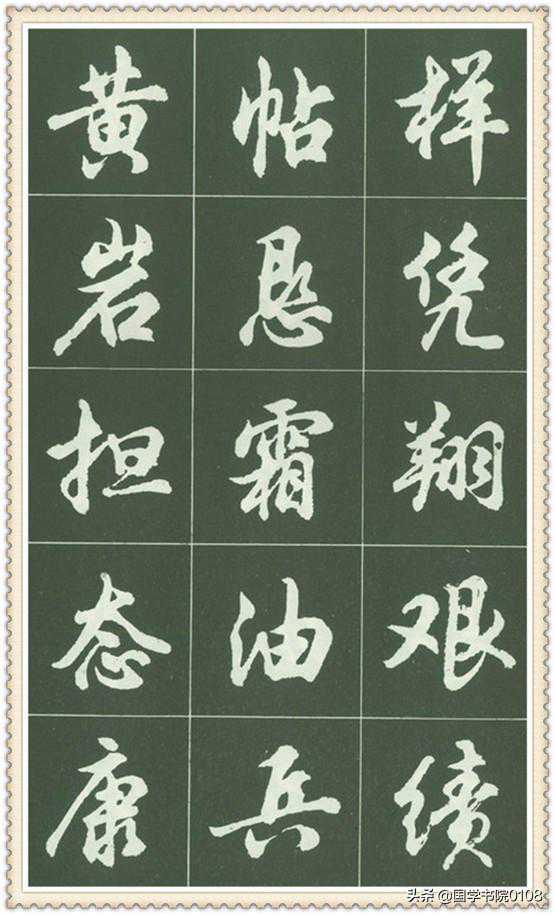 黄帖样
岩悬凭
担霜翔
态油艰
康兵绩
头条@国学书院0108